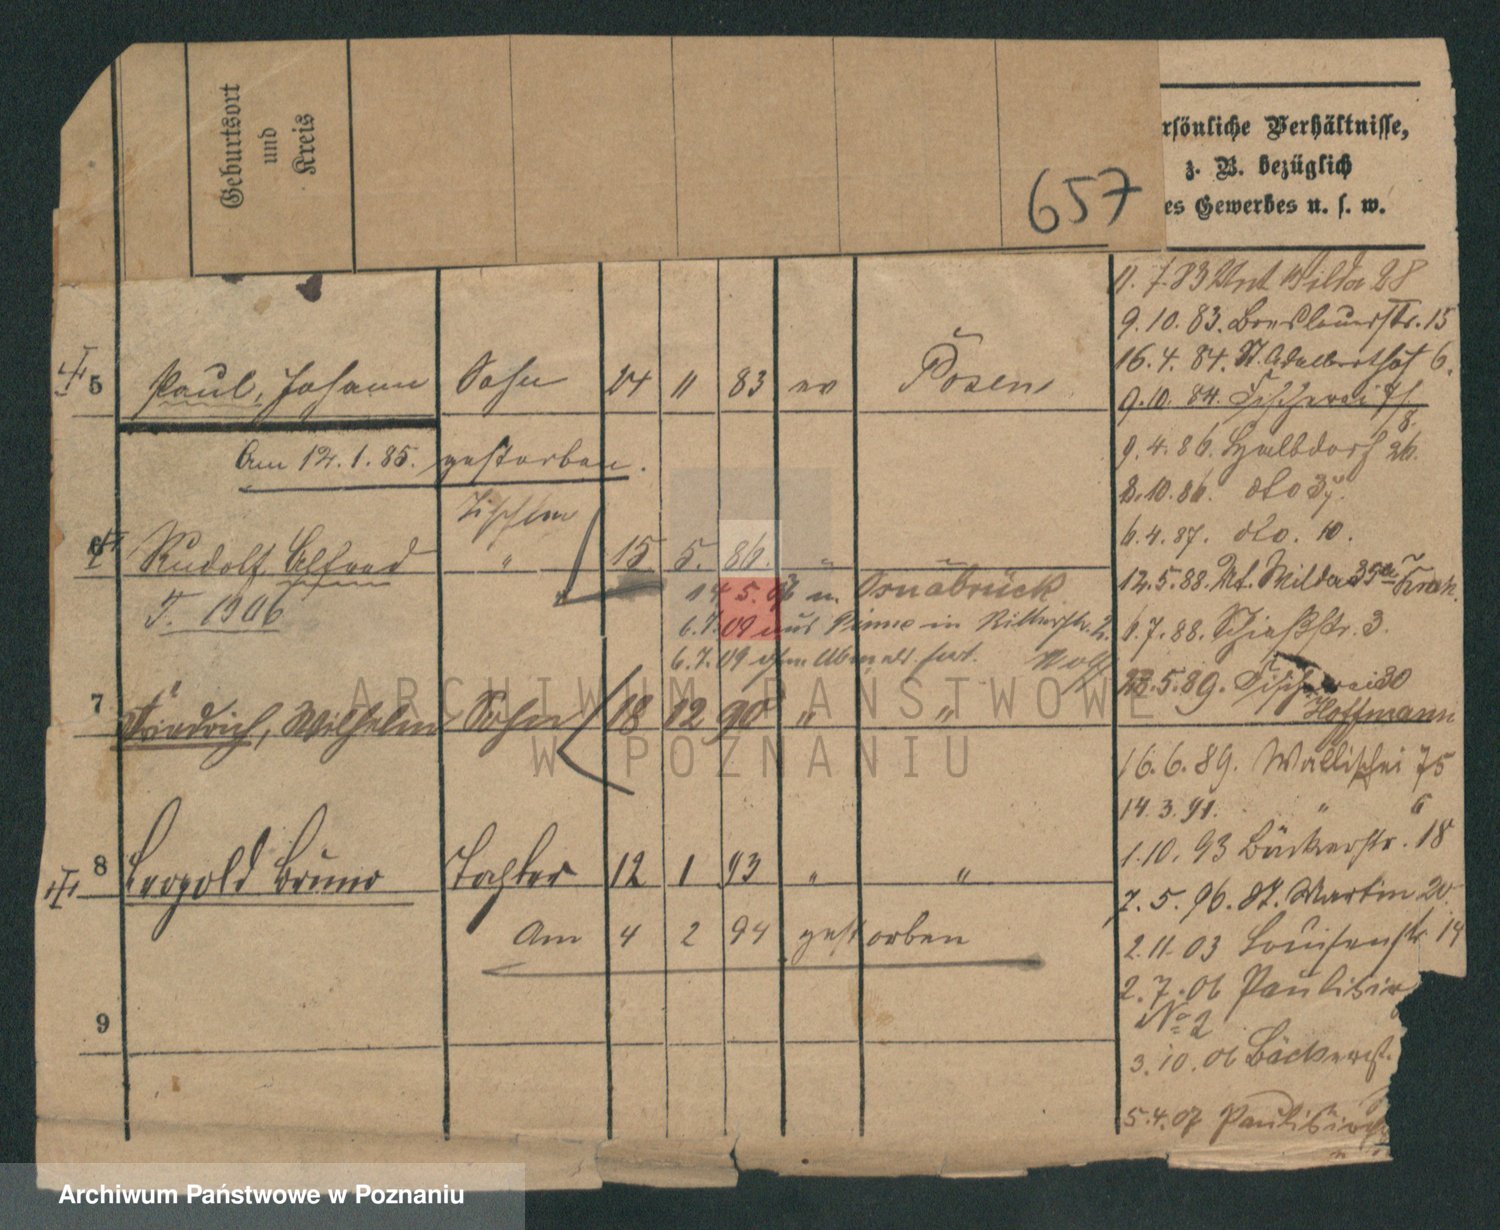 Geburtsort
und
Kreis
657
rsönliche Verhältnisse,
z. B. bezüglich
es Gewerbes u. s. w.
11. 7. 83 Unt Wilda 28
9. 10. 83. Breslauerstr. 15
16. 4. 84. St. Adalberthof 6.
9. 10. 84. Fischerei 7/8.
9. 4. 86. Halbdorf 26.
8. 10. 86. dto 37.
6. 4. 87. dto. 10.
12. 5. 88. Ut. Wilda 35a
6. 7. 88. Schießstr. 3.
5. 89. Fischerei 30
Hoffmann
16. 6. 89. Wallischei 75
14. 3. 91. " 6
1. 10. 93 Bäckerstr. 18
7. 5. 96. St. Martin 20
2. 11. 03 Louisenstr 14
2. 7. 06 Paulikir
No 2
3. 10. 06 Bäckerst.
5. 4. 07 Paulikirch
5 Paul, Johann Sohn 24 11 83 ev Posen
Am 12. 1. 85. gestorben.
Tischler
6 Rudolf Alfred " 15 5. 86. " "
T. 1906
14 5. 06 n. Osnabrück
6. 7. 09 aus Pinne in Ritterstr. 2.
6. 7. 09 ohne Abmeld fort.
7 Friedrich, Wilhelm Sohn 18 12 90 " "
8 Leopold Bruno Tochter 12 1 93 " "
Am 4 2 94 gestorben
9
ARCHIWUM PAŃSTWOWE
W POZNANIU
Archiwum Państwowe w Poznaniu